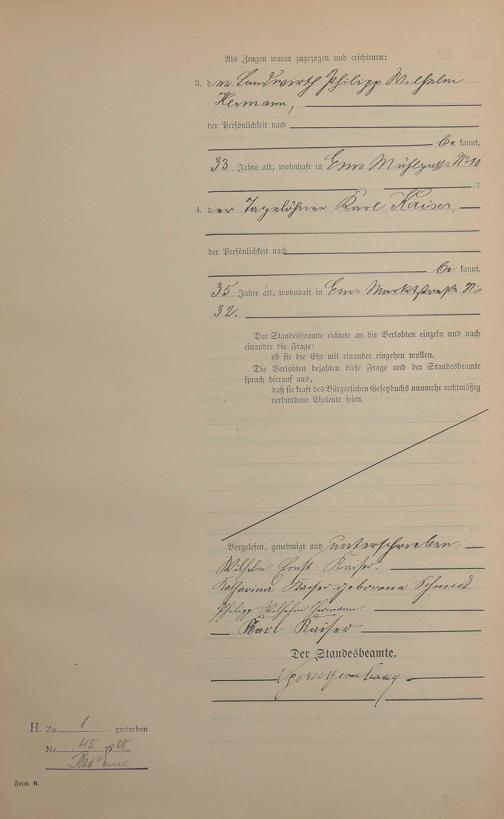 Als Zeugen waren zugezogen und erschienen:
3. der Landwirth Philipp Wilhelm
Hermann,
der Persönlichkeit nach
be kannt,
33 Jahre alt, wohnhaft in Ems Mühlgasse No 10
;
4. der Tagelöhner Karl Kaiser,
der Persönlichkeit nach
be kannt,
35 Jahre alt, wohnhaft in Ems Marktstraße No
32.
Der Standesbeamte richtete an die Verlobten einzeln und nach
einander die Frage:
ob sie die Ehe mit einander eingehen wollen.
Die Verlobten bejahten diese Frage und der Standesbeamte
sprach hierauf aus,
daß sie kraft des Bürgerlichen Gesetzbuchs nunmehr rechtmäßig
verbundene Eheleute seien.
Vorgelesen, genehmigt und unterschrieben
Wilhelm Ernst Kaiser.
Katharina Kaiser geborene Schmidt
Philipp Wilhelm Hermann.
Karl Kaiser
Der Standesbeamte.
H. Zu 1 gestorben
Nr. 45 1928
Bad Ems
Form. B.